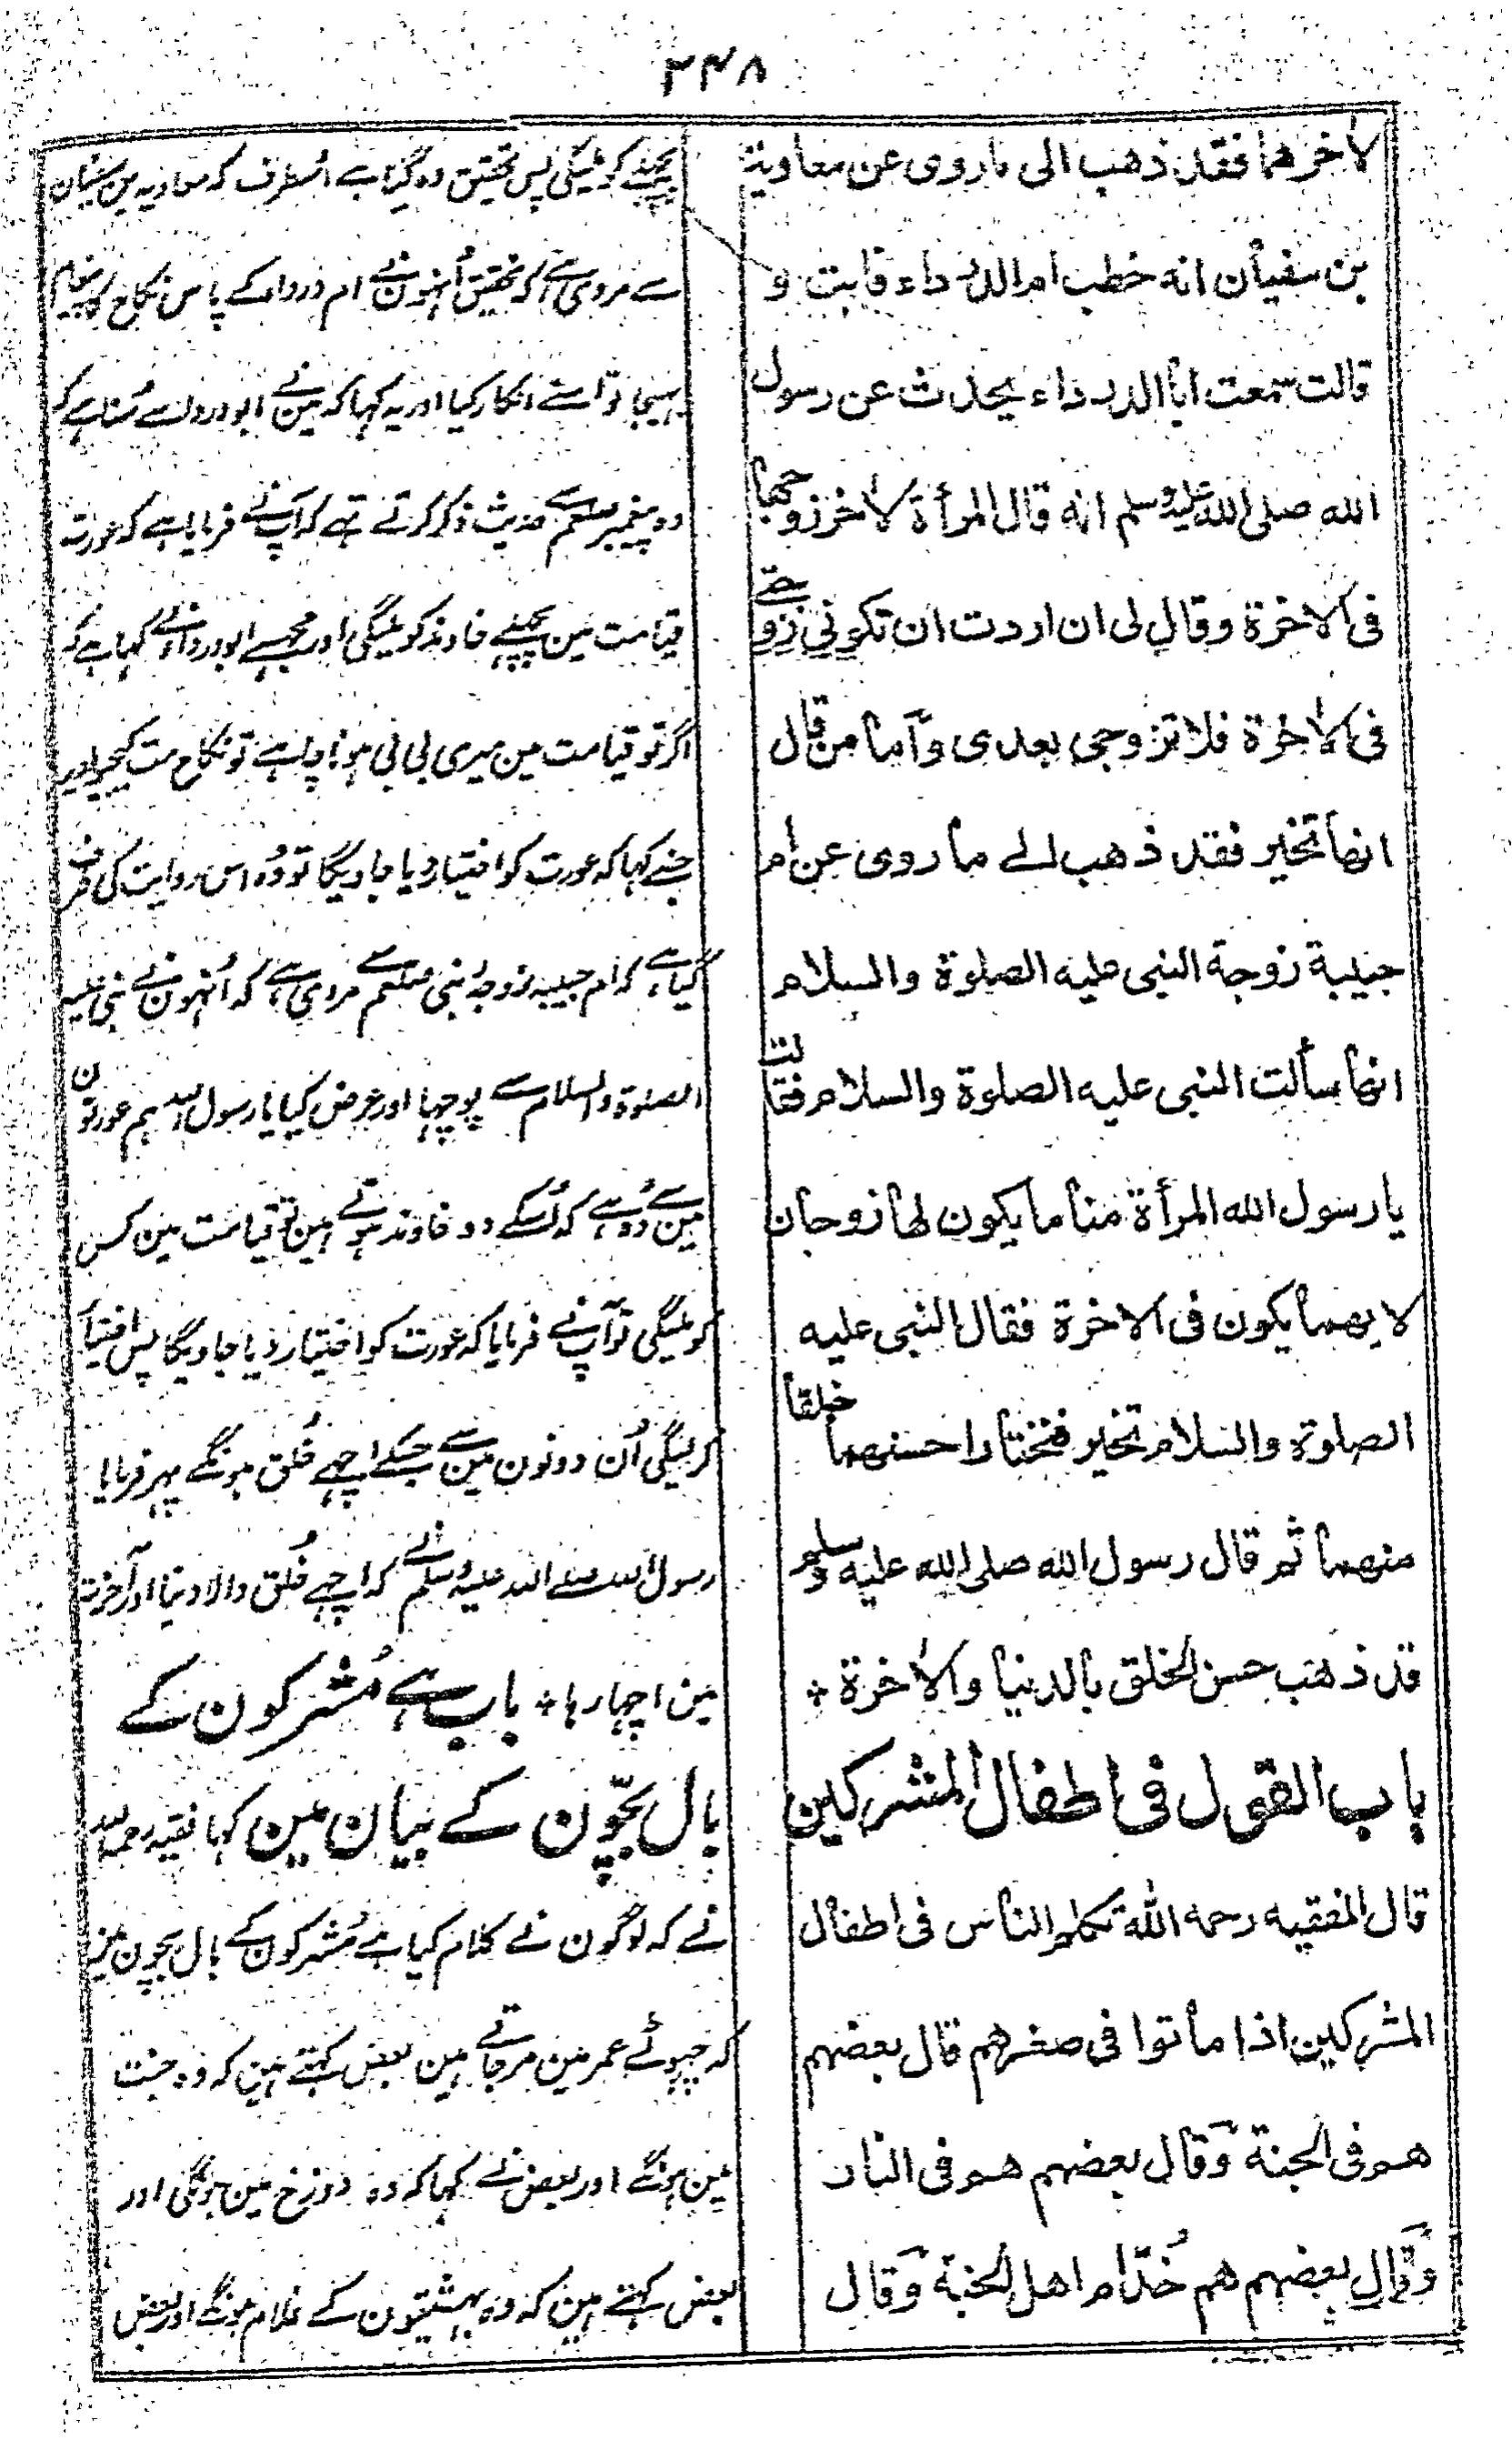 ۳۴۸
لاخرهما فقد ذهب الى ماروى عن معاوية
بن سفيان انه خطب ام الدرداء فابت و
قالت سمعت ابا الدرداء يحدث عن رسول
الله صلى الله عليه وسلم انه قال المرأة لاخر زوجها
فى الاخرة وقال لى ان اردت ان تكونى زوجتى
فى الاخرة فلا تزوجى بعدى وأما من قال
انها تخير فقد ذهب الے ما روى عن ام
حبيبة زوجة النبى عليه الصلوة والسلام
انها سألت النبى عليه الصلوة والسلام فقالت
يا رسول الله المرأة منا ما يكون لها زوجان
لايهما يكون فى الاخرة فقال النبى عليه
الصلوة والسلام تخير فتختار احسنهما خلقا
منهما ثم قال رسول الله صلى الله عليه وسلم
قد ذهب حسن الخلق بالدنيا والاخرة
باب القول فى اطفال المشركين
قال الفقيه رحمه الله تكلموا الناس فى اطفال
المشركين اذا ماتوا فى صغرهم قال بعضهم
هم فى الجنة وقال بعضهم هم فى النار
وقال بعضهم هم خدّام اهل الجنة وقال
پچھلے کو ملیگی پس تحقیق وہ گیا ہے اسطرف کہ معاویہ بن سفیان
سے مروی ہے کہ تحقیق اُنہون نے ام درداء کے پاس نکاح کا پیغام
بہیجا تو اسنے انکار کیا اور یہ کہا کہ مین نے ابو درداء سے سُنا ہے کہ
وہ پیغمبر صلعم سے حدیث ذکر کرتے تہے کہ آپ نے فرمایا ہے کہ عورت
قیامت مین پچھلے خاوند کو ملیگی اور مجھسے ابو درداء نے کہا ہے کہ
اگر تو قیامت مین میری بی بی ہونا چاہے تو نکاح مت کیجیو اور
جنے کہا کہ عورت کو اختیار دیا جاویگا تو وُہ اس روایت کی طرف
گیا ہے کہ ام حبیبہ زوجہ نبی صلعم سے مروی ہے کہ اُنہون نے نبی علیہ
الصلوۃ والسلام سے پوچہا اور عرض کیا یا رسول اللہ ہم عورتون
مین سے وُہ ہے کہ اُسکے دو خاوند ہوتے ہین تو قیامت مین کس
کو ملیگی تو آپ نے فرمایا کہ عورت کو اختیار دیا جاویگا پس اختیار
کریگی اُن دونون مین سے جسکے اچہے خُلق ہونگے پہر فرمایا
رسول اللہ صلے اللہ علیہ وسلم نے کہ اچہے خُلق والا دنیا اور آخرت
مین اچہا رہا باب ہے مُشرکون کے
بال بچّون کے بیان مین کہا فقیہ رحمہ اللہ
نے کہ لوگون نے کلام کیا ہے مُشرکون کے بال بچون مین
کہ چہوٹے عمر مین مرجاتے ہین بعض کہتے ہین کہ وہ جنت
مین ہونگے اور بعض نے کہا کہ وہ دوزخ مین ہونگی اور
بعض کہتے ہین کہ وہ بہشتیون کے غلام ہونگے اور بعض